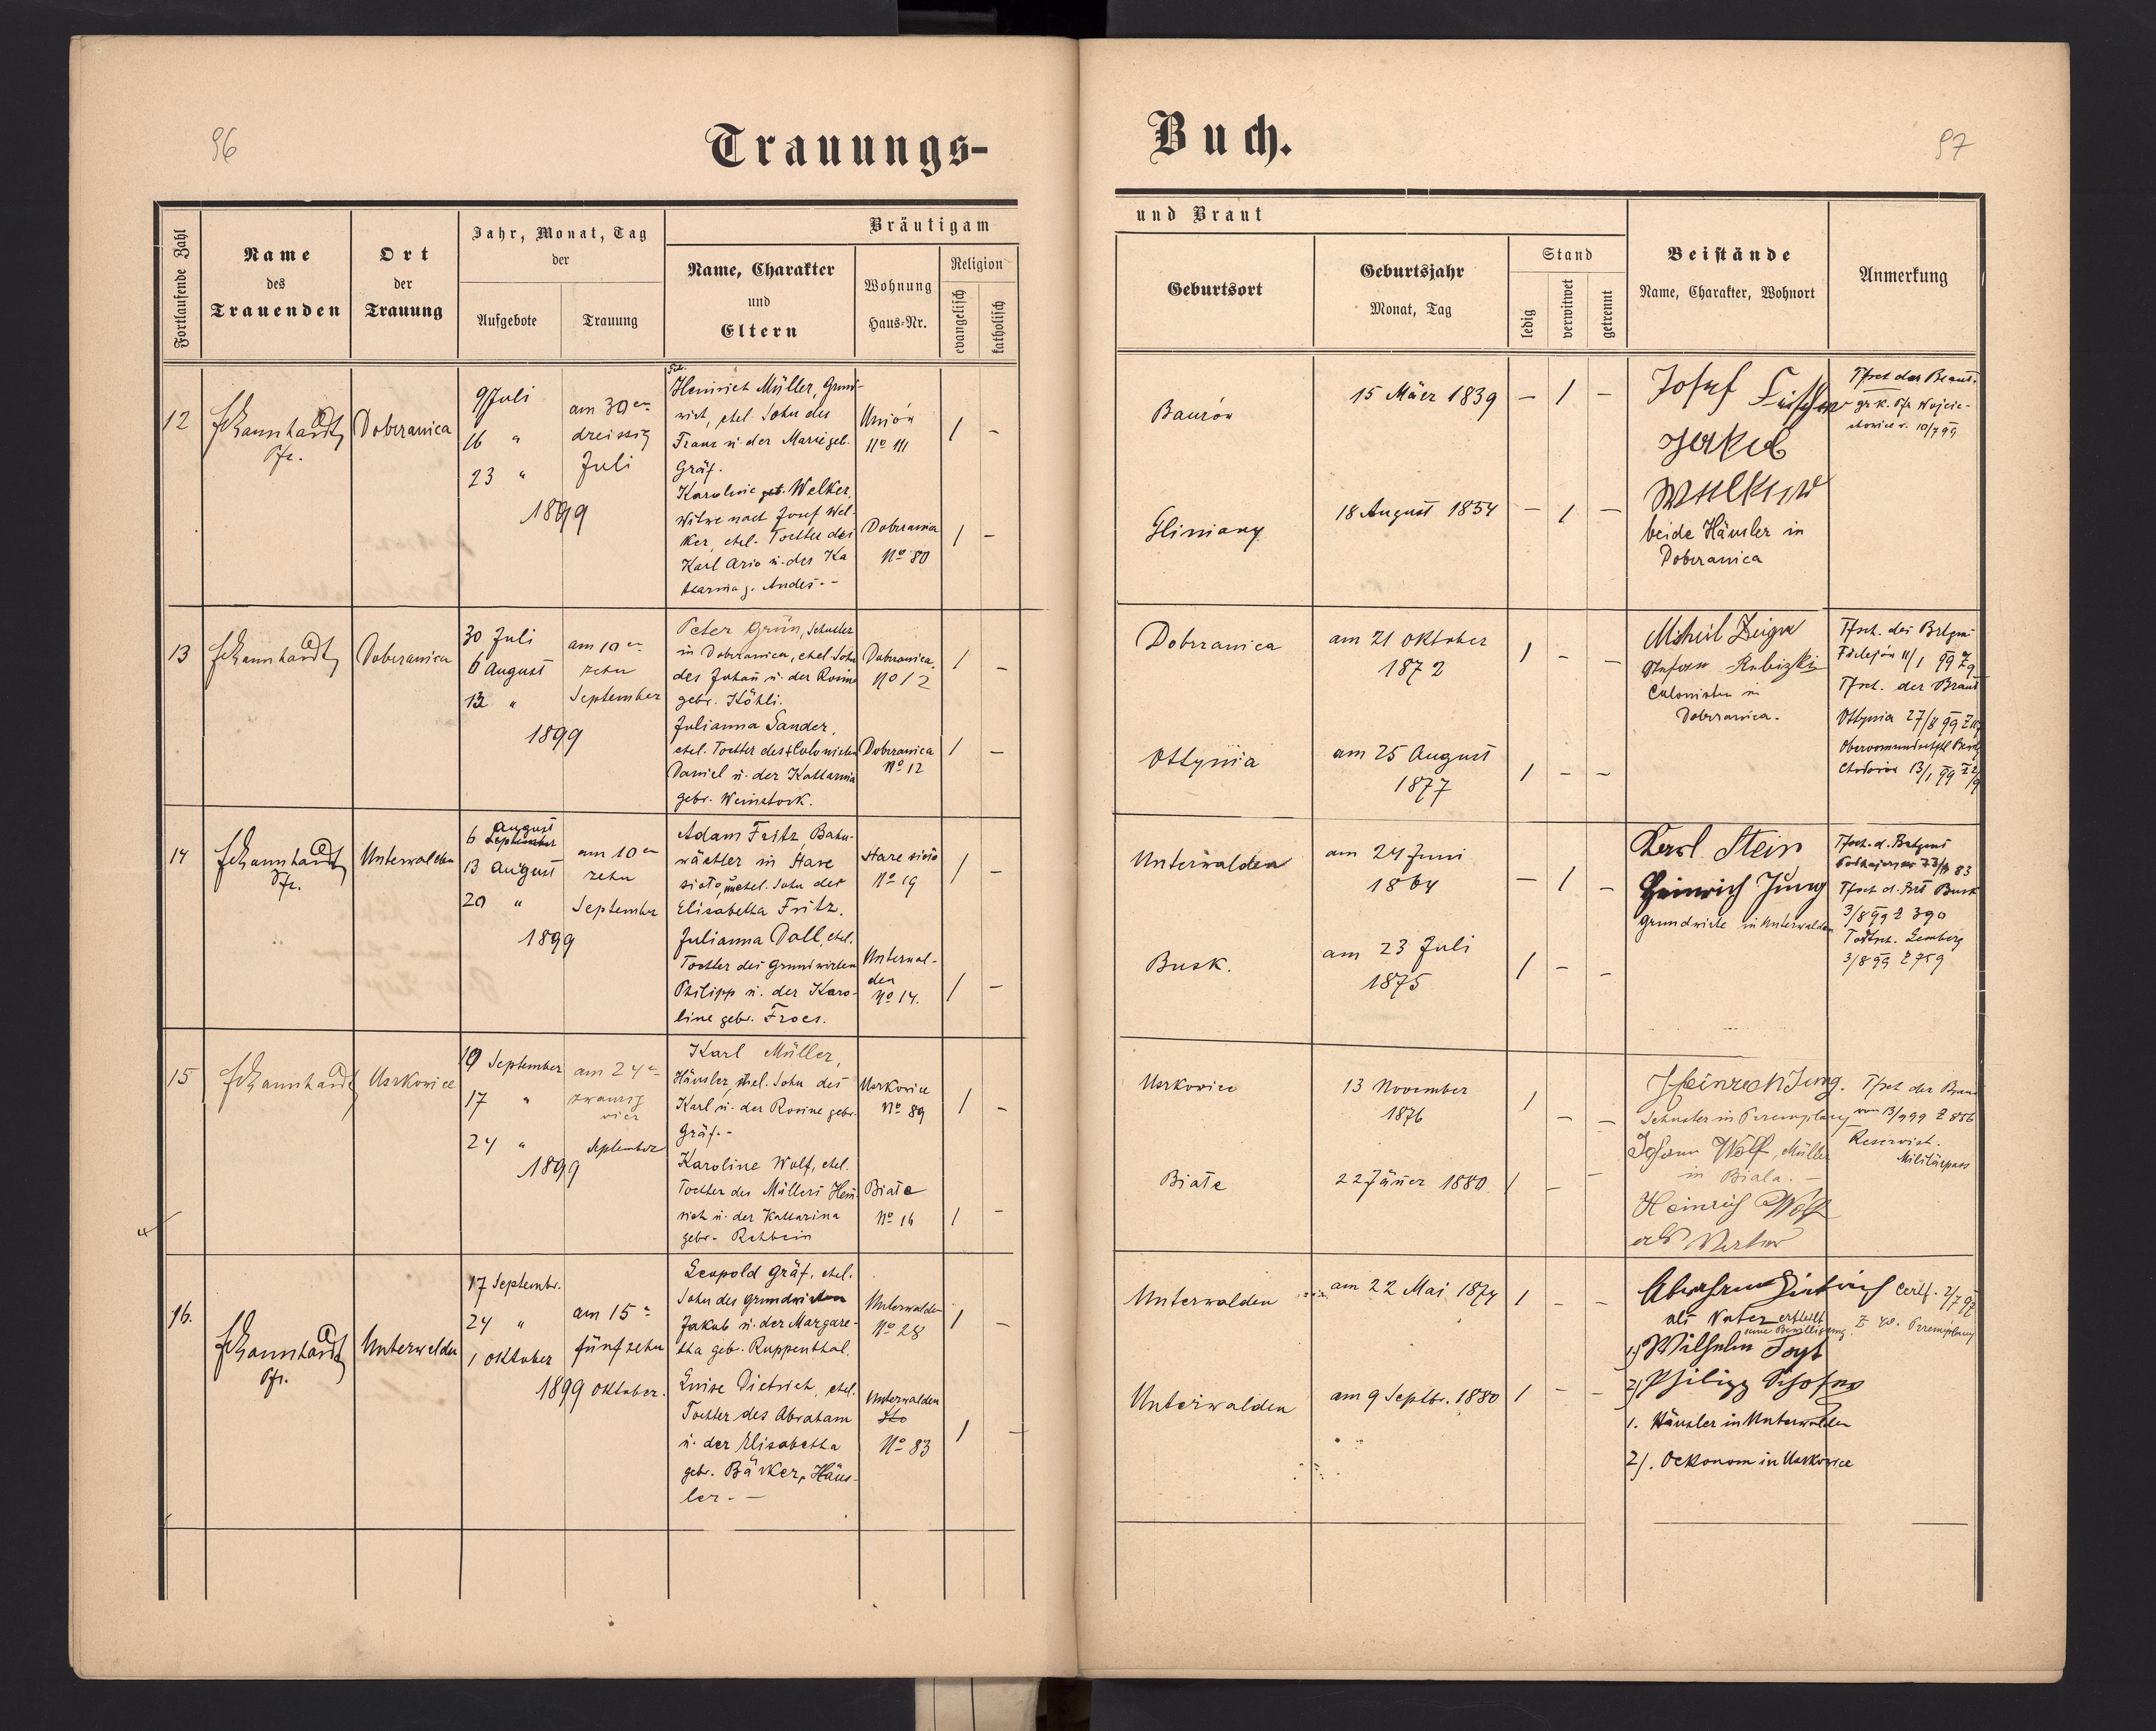 96
Trauungs-
Buch.
97
Fortlaufende Zahl
Name
des
Trauenden
Ort
der
Trauung
Jahr, Monat, Tag
der
Aufgebote
Trauung
Bräutigam
Name, Charakter
und
Eltern
Wohnung
Haus-Nr.
Religion
evangelisch
katholisch
und Braut
Geburtsort
Geburtsjahr
Monat, Tag
Stand
ledig
verwitwet
getrennt
Beistände
Name, Charakter, Wohnort
Anmerkung
12
Pfr.
Dobrzanica
9 Juli
16 "
23 "
1899
am 30en
dreissig
Juli
Heinrich Müller, Grund-
wirt, ehel. Sohn des
Franz u. der Marie geb.
Gräf.
Karoline geb. Welker,
Witwe nach Josef Wel-
ker, ehel. Tochter des
Karl Ario u. der Ka
tharina g. Andes. -
Unjón
No 111
Dobrzanica
No 80
1 -
1 -
Gliniany
15 März 1839
18 August 1854
- 1 -
- 1 -
Josef
beide Häusler in
Dobrzanica
Tfsch der Braut.
gr. k. Pfr Wojcie-
chowice v. 10/7 99
13
Dobrzanica
30 Juli
6 August
13 "
1899
am 10en
zehn
September
Peter Grün, Schuster
in Dobrzanica, ehel. Sohn
des Johan u. der Rosine
gebr. Köhli.
Julianna Sander,
ehel. Tochter des + Colonisten
Daniel u. der Katharina
gebr. Weinstock.
Dobrzanica.
No 12
Dobrzanica
No 12
1 -
1 -
Dobrzanica
Ottynia
am 21 Oktober
1872
am 25 August
1877
1 - -
1 - -
Colonisten in
Dobrzanica.
Tfsch. des Brtgms
11/1 99
Tfsch. der Braut
Ottynia 27/8 99
13/1 99
14
Pfr.
Unterwalden
6 August
September
13 August
20 "
1899
am 10en
zehn
September
Adam Fritz, Bahn-
wächter in Stare
sioło, unehel. Sohn der
Elisabetha Fritz.
Julianna Doll, ehel.
Tochter des Grundwirten
Philipp u. der Karo-
line gebr. Froes.
Stare sioło
No 19
Unterwal-
den
No 14.
1 -
1 -
Unterwalden
Busk.
am 24 Juni
1864
am 23 Juli
1875
- 1 -
1 - -
Karl Stein
Heinrich Jung
Grundwirte in Unterwalden
Tfsch. d. Brtgms
Tfsch d. Brt Busk
3/8 99 Z 390
Lemberg
3/8 99 Z 759
15
Uszkowice
10 September
17 "
24 "
1899
am 24en
zwanzig
vier
September
Karl Müller,
Häusler, ehel. Sohn des
Karl u. der Rosine gebr.
Gräf. -
Karoline Wolf, ehel.
Tochter des Müllers Hein-
rich u. der Katharina
gebr. Rehbein
Uszkowice
No 89
Białe
No 16
1 -
1 -
Uszkowice
Białe
13 November
1876
22 Jäner 1880
1 - -
1 - -
Heinrich Jung.
Schuster in Przemyslany
Johann Wolf, Müller
in Biala. -
Heinrich Wolf
als Vater
Tfsch der Braut
vom 13/9 99 Z 856
Reservist.
Militärpass
16.
Pfr.
Unterwalden
17 Septembr.
24 "
1 Oktober
1899
am 15n
fünfzehn
Oktober.
Leopold Gräf, ehel.
Sohn des Grundwirten
Jakob u. der Margare-
tha geb. Ruppenthal.
Luise Dietrich, ehel.
Tochter des Abraham
u. der Elisabetha
gebr. Bärker, Häus-
ler. -
Unterwalden
No 28
Unterwalden
No 83
1 -
1 -
Unterwalden
Unterwalden
am 22 Mai 1874
am 9 Septbr. 1880
1 - -
1 - -
Abraham Dietrich
als Vater ertheilt
seine Bewilligung.
1) Wilhelm
2) Philipp
1. Häusler in Unterwalden
2). Oekonom in Uszkowice
Certf. 2/7 97
Przemyslany